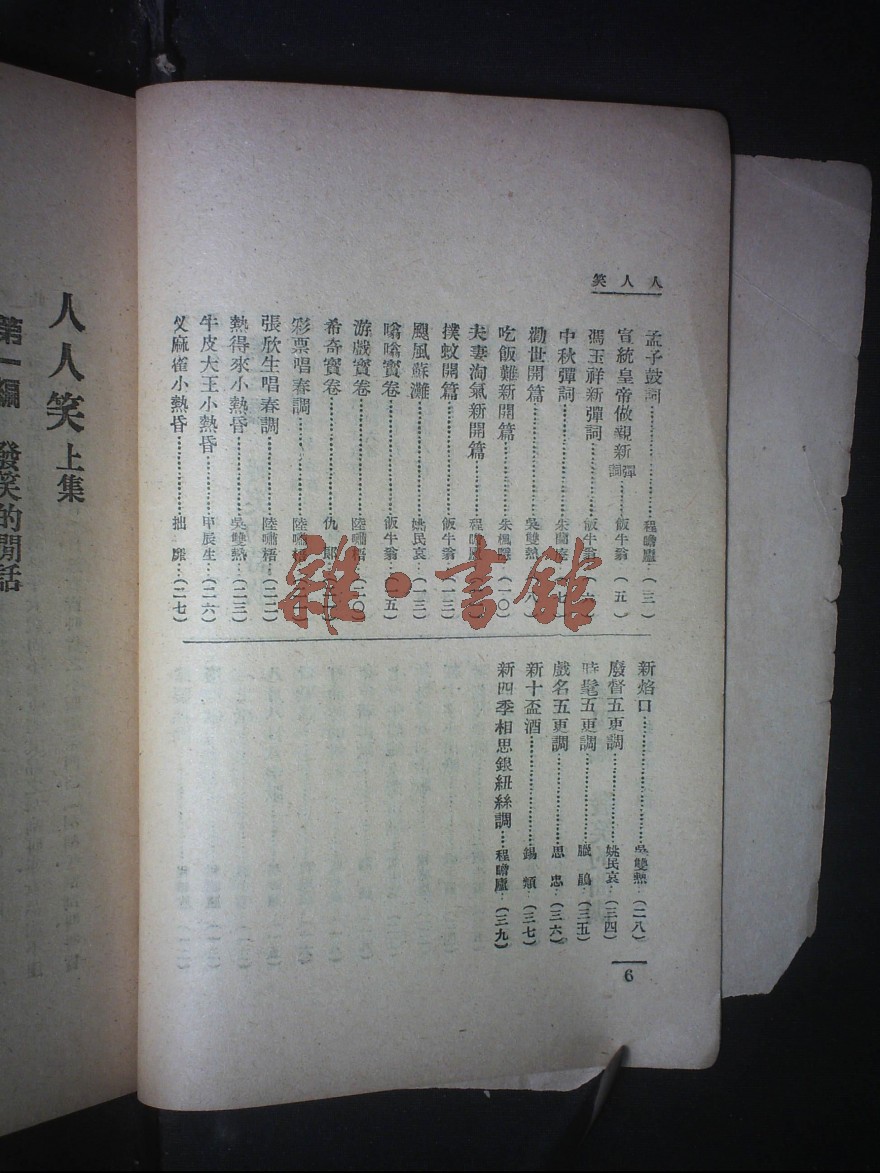 人人笑
孟子鼓詞……程瞻廬…(三)
宣統皇帝做親新彈詞……飯牛翁(五)
馮玉祥新彈詞……飯牛翁(六)
中秋彈詞……朱蘭庵(七)
勸世開篇……吳雙熱(八)
吃飯難新開篇……朱楓隱(一〇)
夫妻淘氣新開篇……程瞻廬
撲蚊開篇……飯牛翁(一三)
颶風蘇灘……姚民哀(一三)
嗡嗡寶卷……飯牛翁(一五)
游戲寶卷……陸嘯梧(二〇)
希奇寶卷……仇 郎
彩票唱春調……陸嘯梧
張欣生唱春調……陸嘯梧(二二)
熱得來小熱昏……吳雙熱…(二三)
牛皮大王小熱昏……甲辰生…(二六)
叉麻雀小熱昏……拙 廉…(二七)
新焰口……吳雙熱…(二八)
廢督五更調……姚民哀…(三四)
時髦五更調……(三五)
戲名五更調……思 忠…(三六)
新十盃酒……錫 類…(三七)
新四季相思銀紐絲調……程瞻廬…(三九)
6
人人笑上集
第一編 發笑的閒話
雜·書館